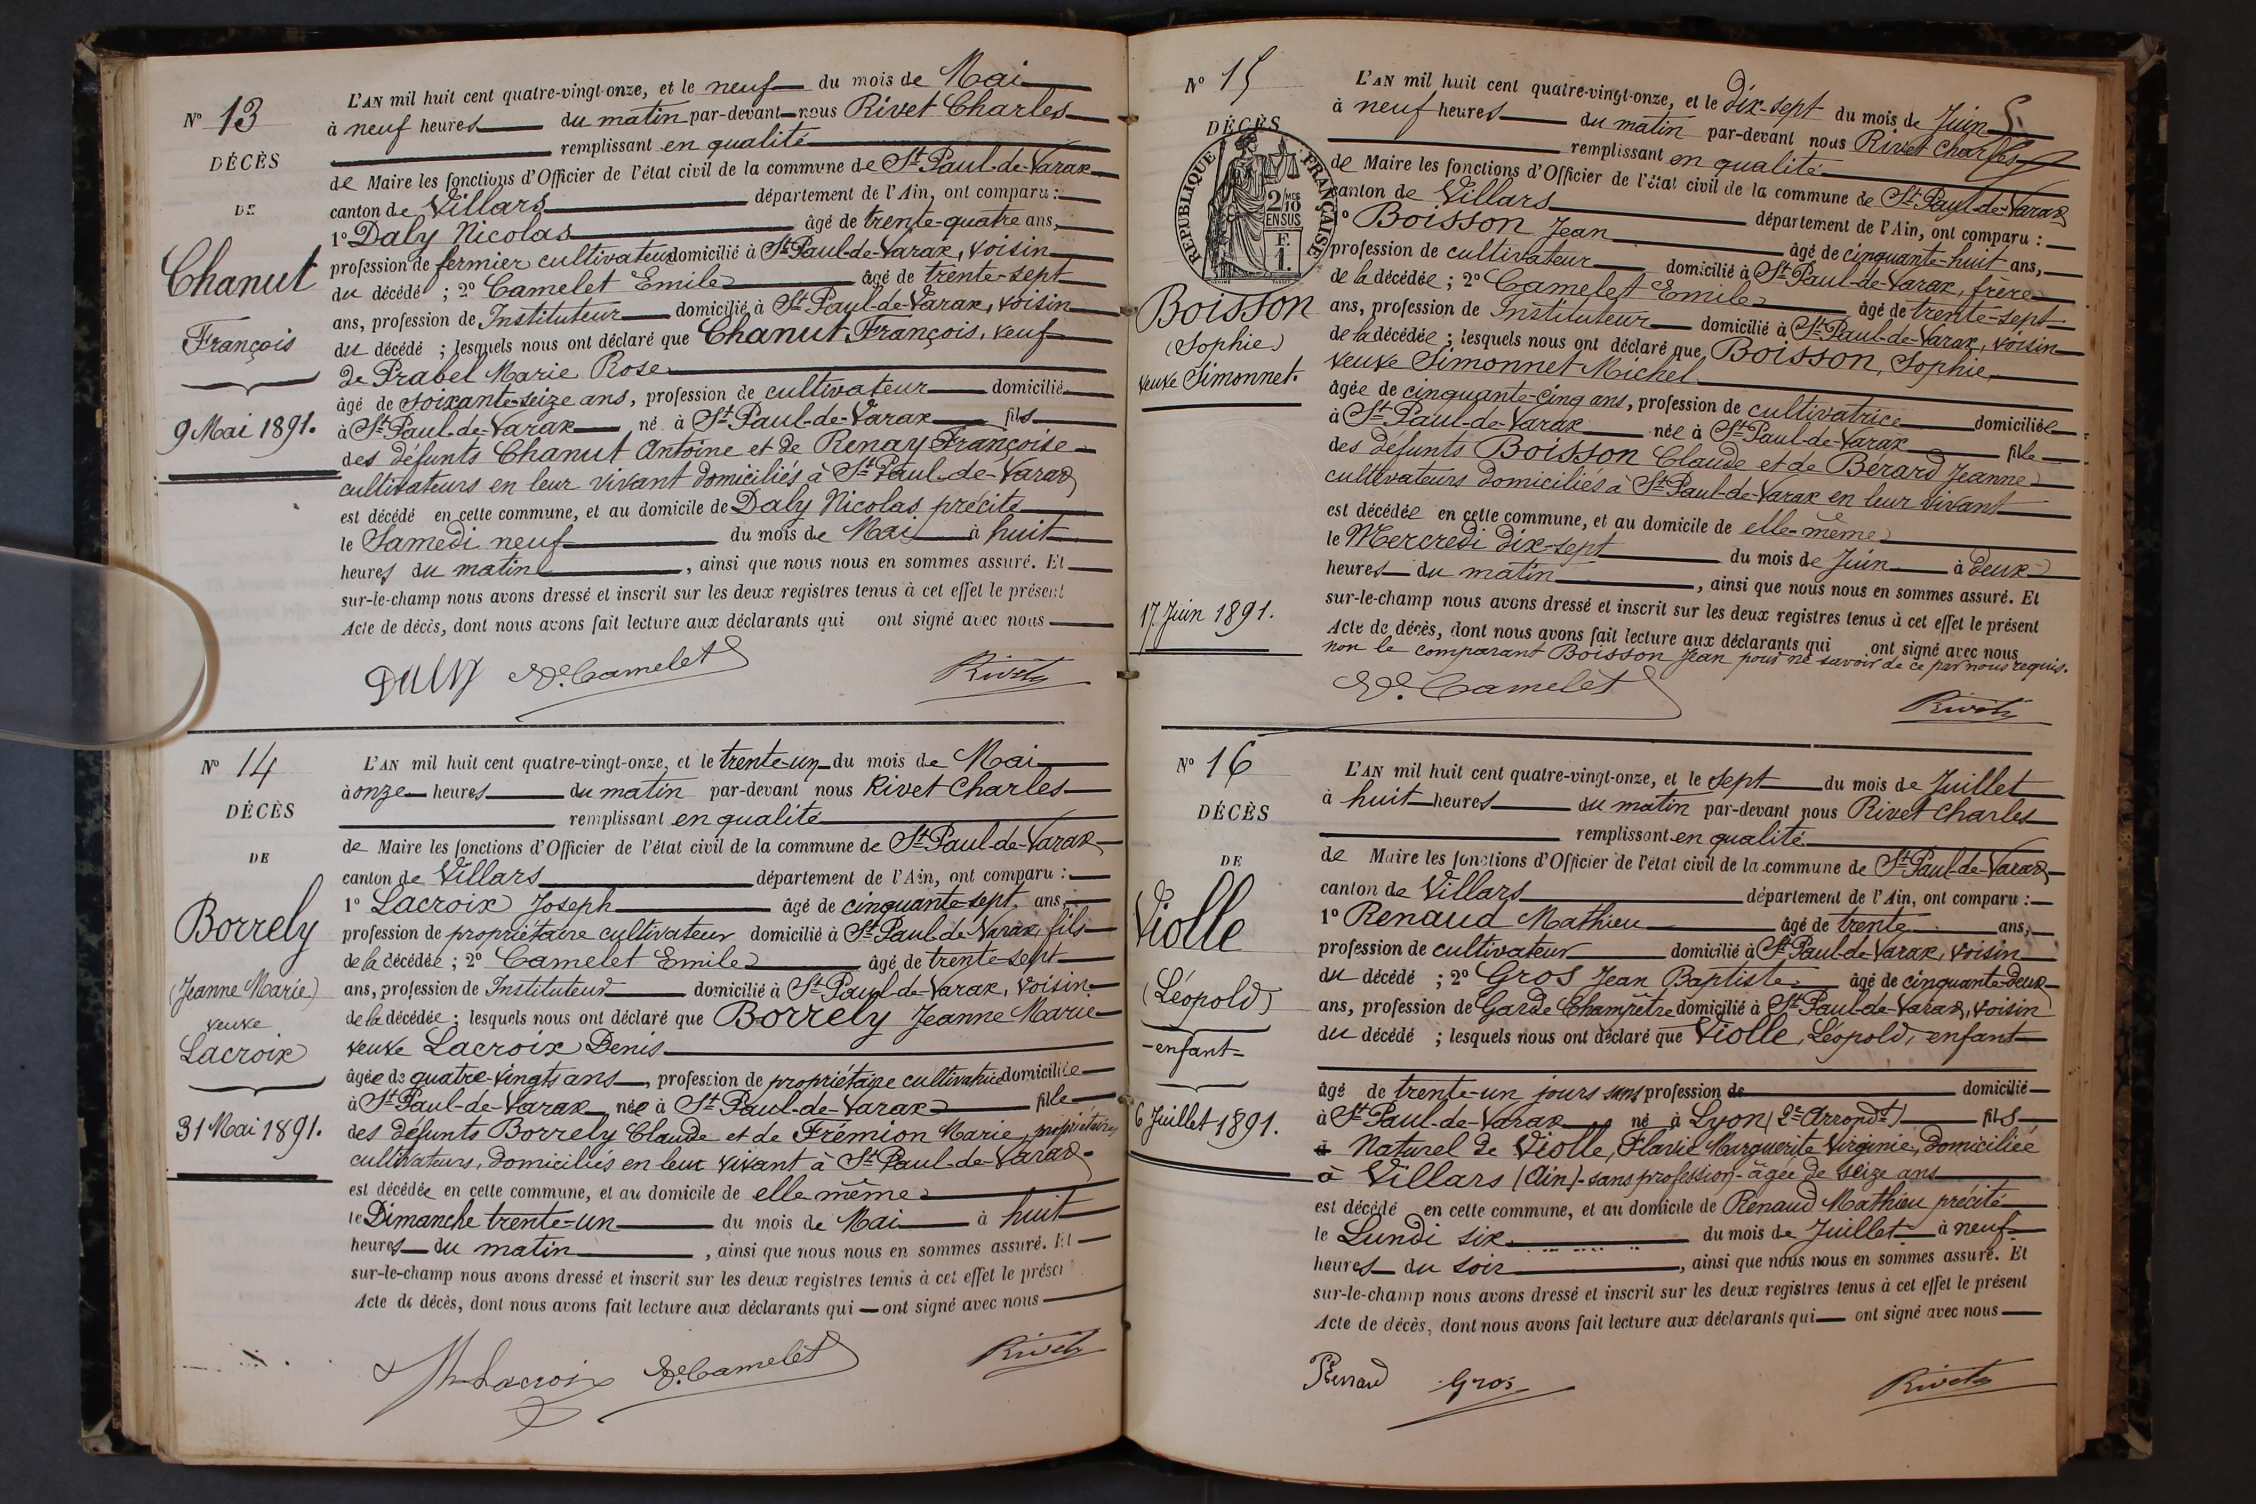 N° 13
DÉCÈS
DE
Chanut
François
9 Mai 1891.
L'AN mil huit cent quatre-vingt-onze, et le neuf du mois de Mai
à neuf heures du matin par-devant nous Rivet Charles
remplissant en qualité
de Maire les fonctions d'Officier de l'état civil de la commune de St Paul-de-Varax
canton de Villars département de l'Ain, ont comparu :
1° Daly Nicolas âgé de trente-quatre ans,
profession de fermier cultivateur domicilié à St Paul-de-Varax, voisin
du décédé ; 2° Camelet Emile âgé de trente-sept
ans, profession de Instituteur domicilié à St Paul-de-Varax, voisin
du décédé ; lesquels nous ont déclaré que Chanut François, veuf
de Prabel Marie Rose
âgé de soixante-seize ans, profession de cultivateur domicilié
à St Paul-de-Varax né à St Paul-de-Varax fils
des défunts Chanut Antoine et de Renay Françoise
cultivateurs en leur vivant domiciliés à St Paul-de-Varax
est décédé en cette commune, et au domicile de Daly Nicolas précité
le Samedi neuf du mois de Mai à huit
heures du matin , ainsi que nous nous en sommes assuré. Et
sur-le-champ nous avons dressé et inscrit sur les deux registres tenus à cet effet le présent
Acte de décès, dont nous avons fait lecture aux déclarants qui ont signé avec nous
E. Camelet Rivet
N° 14
DÉCÈS
DE
Borrely
(Jeanne Marie)
veuve
Lacroix
31 Mai 1891.
L'AN mil huit cent quatre-vingt-onze, et le trente-un du mois de Mai
à onze heures du matin par-devant nous Rivet Charles
remplissant en qualité
de Maire les fonctions d'Officier de l'état civil de la commune de St Paul-de-Varax
canton de Villars département de l'Ain, ont comparu :
1° Lacroix Joseph âgé de cinquante-sept ans,
profession de propriétaire cultivateur domicilié à St Paul-de-Varax, fils
de la décédée ; 2° Camelet Emile âgé de trente-sept
ans, profession de Instituteur domicilié à St Paul-de-Varax, voisin
de la décédée ; lesquels nous ont déclaré que Borrely Jeanne Marie
veuve Lacroix Denis
âgée de quatre-vingts ans , profession de propriétaire cultivatrice domiciliée
à St Paul-de-Varax née à St Paul-de-Varax fille
des défunts Borrely Claude et de Frémion Marie, propriétaires
cultivateurs, domiciliés en leur vivant à St Paul-de-Varax
est décédée en cette commune, et au domicile de elle même
le Dimanche trente-un du mois de Mai à huit
heures du matin , ainsi que nous nous en sommes assuré. Et
sur-le-champ nous avons dressé et inscrit sur les deux registres tenus à cet effet le présent
Acte de décès, dont nous avons fait lecture aux déclarants qui ont signé avec nous
Lacroix E. Camelet Rivet
N° 15
DÉCÈS
RÉPUBLIQUE FRANÇAISE
2/10
EN SUS
Boisson
(Sophie)
veuve Simonnet.
17 Juin 1891.
L'AN mil huit cent quatre-vingt-onze, et le dix-sept du mois de Juin
à neuf heures du matin par-devant nous Rivet Charles
remplissant en qualité
de Maire les fonctions d'Officier de l'état civil de la commune de St Paul-de-Varax
canton de Villars département de l'Ain, ont comparu :
1° Boisson Jean âgé de cinquante-huit ans,
profession de cultivateur domicilié à St Paul-de-Varax, frère
de la décédée ; 2° Camelet Emile âgé de trente-sept
ans, profession de Instituteur domicilié à St Paul-de-Varax, voisin
de la décédée ; lesquels nous ont déclaré que Boisson, Sophie,
veuve Simonnet Michel
âgée de cinquante-cinq ans, profession de cultivatrice domiciliée
à St Paul-de-Varax née à St Paul-de-Varax fille
des défunts Boisson Claude et de Bérard Jeanne
cultivateurs domiciliés à St Paul-de-Varax en leur vivant
est décédée en cette commune, et au domicile de elle-même
le Mercredi dix-sept du mois de Juin à deux
heures du matin , ainsi que nous nous en sommes assuré. Et
sur-le-champ nous avons dressé et inscrit sur les deux registres tenus à cet effet le présent
Acte de décès, dont nous avons fait lecture aux déclarants qui ont signé avec nous
non le comparant Boisson Jean pour ne savoir de ce par nous requis.
E. Camelet Rivet
N° 16
DÉCÈS
DE
Violle
(Léopold)
-enfant-
6 Juillet 1891.
L'AN mil huit cent quatre-vingt-onze, et le sept du mois de Juillet
à huit heures du matin par-devant nous Rivet Charles
remplissant en qualité
de Maire les fonctions d'Officier de l'état civil de la commune de St Paul-de-Varax
canton de Villars département de l'Ain, ont comparu :
1° Renaud Mathieu âgé de trente ans,
profession de cultivateur domicilié à St Paul-de-Varax, voisin
du décédé ; 2° Gros Jean Baptiste âgé de cinquante-deux
ans, profession de Garde Champêtre domicilié à St Paul-de-Varax, voisin
du décédé ; lesquels nous ont déclaré que Violle, Léopold, enfant
âgé de trente-un jours sans profession de domicilié
à St Paul-de-Varax né à Lyon (2e Arrondt) fils
à Naturel de Violle, Flavie Marguerite Virginie, domiciliée
à Villars (Ain) - sans profession - âgée de seize ans
est décédé en cette commune, et au domicile de Renaud Mathieu précité
le Lundi six du mois de Juillet à neuf
heures du soir , ainsi que nous nous en sommes assuré. Et
sur-le-champ nous avons dressé et inscrit sur les deux registres tenus à cet effet le présent
Acte de décès, dont nous avons fait lecture aux déclarants qui ont signé avec nous
Renaud Gros Rivet